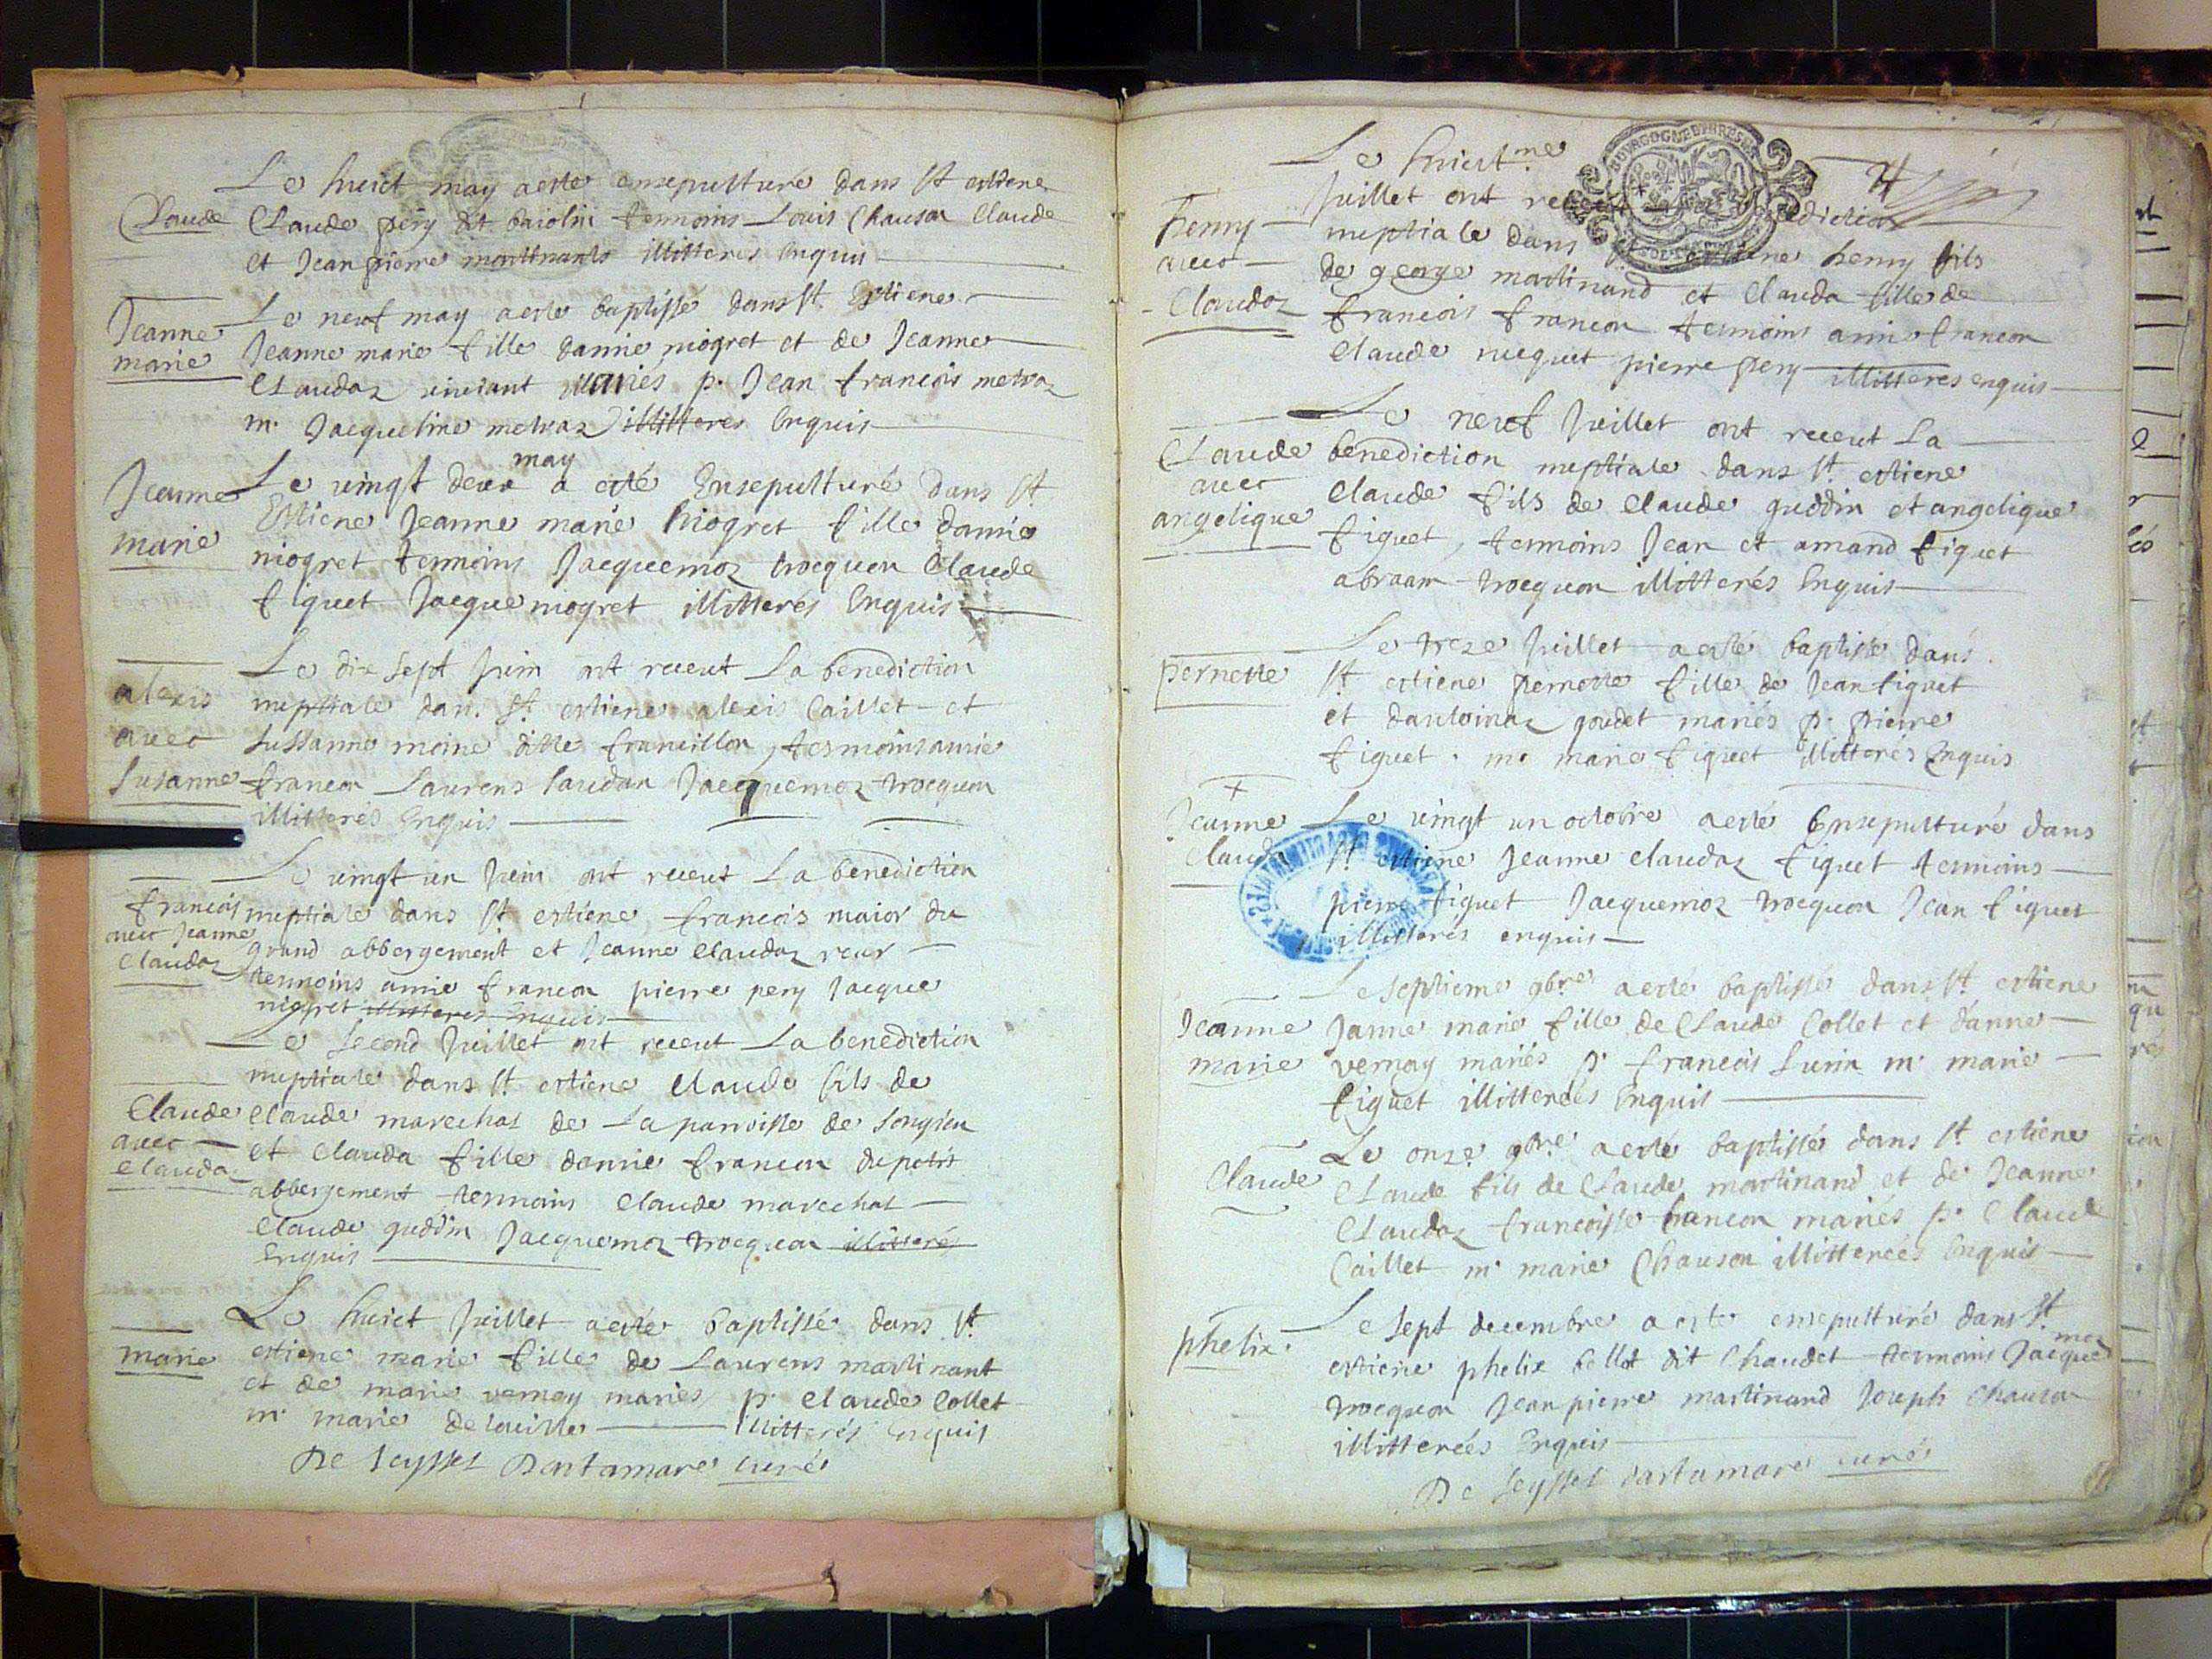 Le huict may a esté ensepulturé dans St estiene
Claude Claude pery dit baiolin tesmoins Louis Chauson Claude
et Jean pierre martinants illitteres Enquis
Le neuf may a esté baptissé dans St. Estiene
Jeanne marie Jeanne marie fille damie niogret et de Jeanne
Claudaz vivant mariés p. Jean francois metraz
m. Jacqueline metraz illitteres Enquis
may
Jeanne Le vingt deux a esté Ensepulturé dans St
marie Estiene Jeanne marie niogret fille damie
niogret tesmoins Jacquemoz trocquon Claude
figuet Jacque niogret illitterés Enquis
Le dix sept Juin ont receut La benediction
alexis nuptiale dans St. estiene alexis Caillet et
avec Sussanne moine ditte francillon, tesmoins amie
Susanne francon Laurens Jacquemoz trocquon
illitterés Enquis
Le vingt un Juin ont receut La benediction
francois nuptiale dans St estiene francois maior du
avec Jeanne
Claudaz grand abbergement et Jeanne Claudaz
tesmoins amie francon pierre pery Jacque
niogret illitteres Enquis
Le Second Juillet ont receut La benediction
nuptiale dans St. estiene Claude fils de
Claude Claude marechal de La paroisse de Songieu
avec
Clauda et Clauda fille damie francon du petit
abbergement tesmoins Claude marechal
Claude guddin Jacquemoz trocquon illitterés
Enquis
Le huict Juillet a esté Baptissé dans St.
marie estiene marie fille de Laurens martinant
et de marie vernay mariés p. Claude Collet
m. marie illitterés Enquis
De Seyssel Dartamare curé
Le huict.me
Juillet ont
henny nuptiale dans henry fils
avec de george martinand et Clauda fille de
Claudaz francois francon tesmoins amie francon
Claude pierre pery illitteres enquis
Le neuf Juillet ont receut La
Claude benediction nuptiale dans St. estiene
avec Claude fils de Claude guddin et angelique
angelique figuet, tesmoins Jean et amand figuet
abraam trocquon illitterés Enquis
Le treze Juillet a esté baptissé dans
pernette St. estiene pernette fille de Jean figuet
et goudet mariés p. pierre
figuet. m. marie figuet illitterés Enquis
Jeanne Le vingt un octobre a esté Ensepulturé dans
Clauda St estiene Jeanne Claudaz figuet tesmoins
pierre figuet Jacquemoz trocquon Jean figuet
illitterés enquis
Le septieme 9bre a esté baptissé dans St. estiene
Jeanne Janne marie fille de Claude Collet et danne
marie vernay mariés p. francois m. marie
figuet illitterées Enquis
Le onze 9bre a esté baptissé dans St. estiene
Claude Claude fils de Claude martinand et de Jeanne
Claudaz francoisse francon mariés p. Claude
Caillet m. marie Chauson illitterées Enquis
Le sept decembre a esté ensepulturé dans St.
phelix estiene phelix bellod dit Chaudet tesmoins Jacquemoz
trocquon Jean pierre martinand Joseph Chauson
illitterées Enquis
De Seyssel dartamare curé